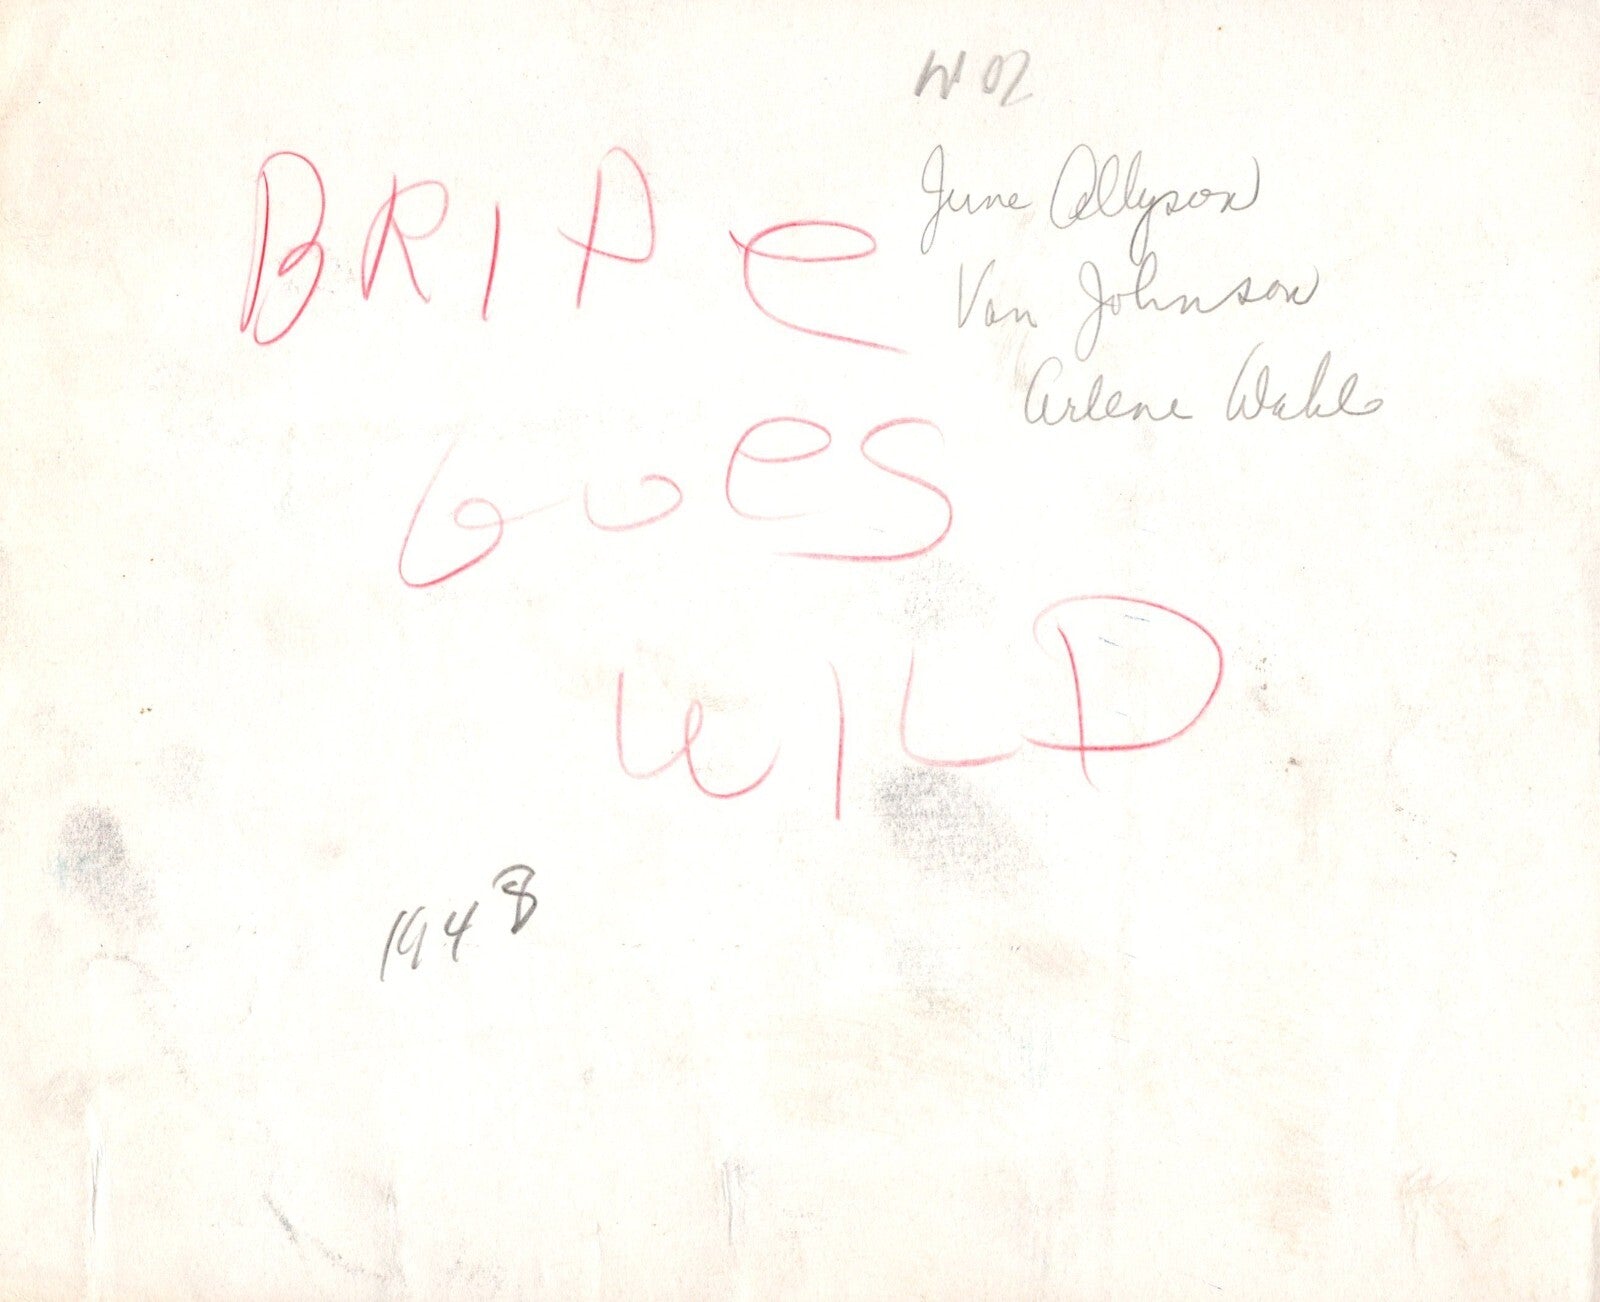 W 02
June Allyson
Van Johnson
Arlene Wahl
BRIDe
GOeS
WILD
1948